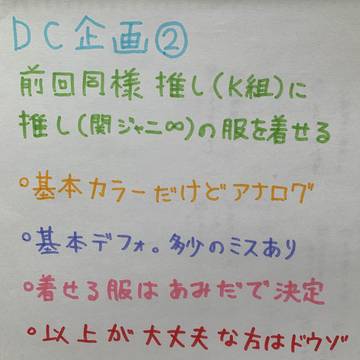 DC企画②
前回同様 推し(K組)に
推し(関ジャニ∞)の服を着せる
○基本カラーだけどアナログ
○基本デフォ。多少のミスあり
○着せる服はあみだで決定
○以上が大丈夫な方はドウゾ